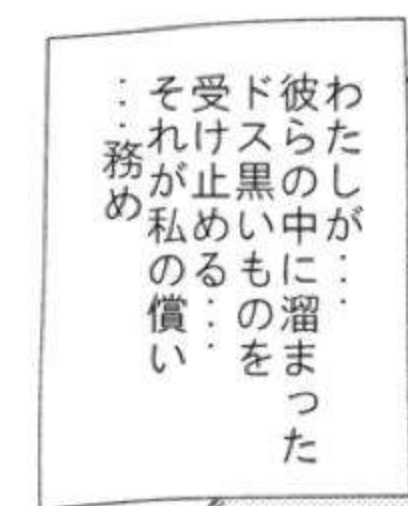 わたしが…
彼らの中に溜まった
ドス黒いものを
受け止める…
それが私の償い
…務め